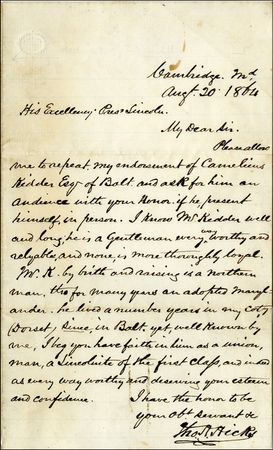 Cambridge. Md,
Augt. 20. 1864
His Excellency. Pres. Lincoln.
My Dear Sir.
Please allow
me to repeat, my endorsement of Camelius
Kidder Esqr. of Balt. and ask for him an
audience with your Honor. if he present
himself, in person. I know Mr Kedder well
and long, he is a Gentleman every way worthy and
relyable, and none, is more thoroughly loyal.
Mr. K. by birth and raising is a northern
man, tho for many years an adopted Maryl-
ander. he lived a number years in my coty
(Dorset) Since, in Balt. yet, well Known by
me, I beg you have faith in him as a union,
man, a Lincolnite of the first Class, and indeed
as every way worthy and deserving your esteem
and confidence. I have the honor to be
your Obt. Servant &
Tho. H. Hicks